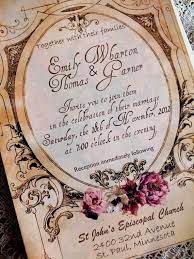 Together with their families
Emily Wharton
Thomas & Garner
Invites you to join them
in the celebration of their marriage
Saturday, the 18th of November, 2012
at 7:00 o'clock in the evening
Reception immediately following
St John's Episcopal Church
2400 32nd Avenue
St. Paul, Minnesota